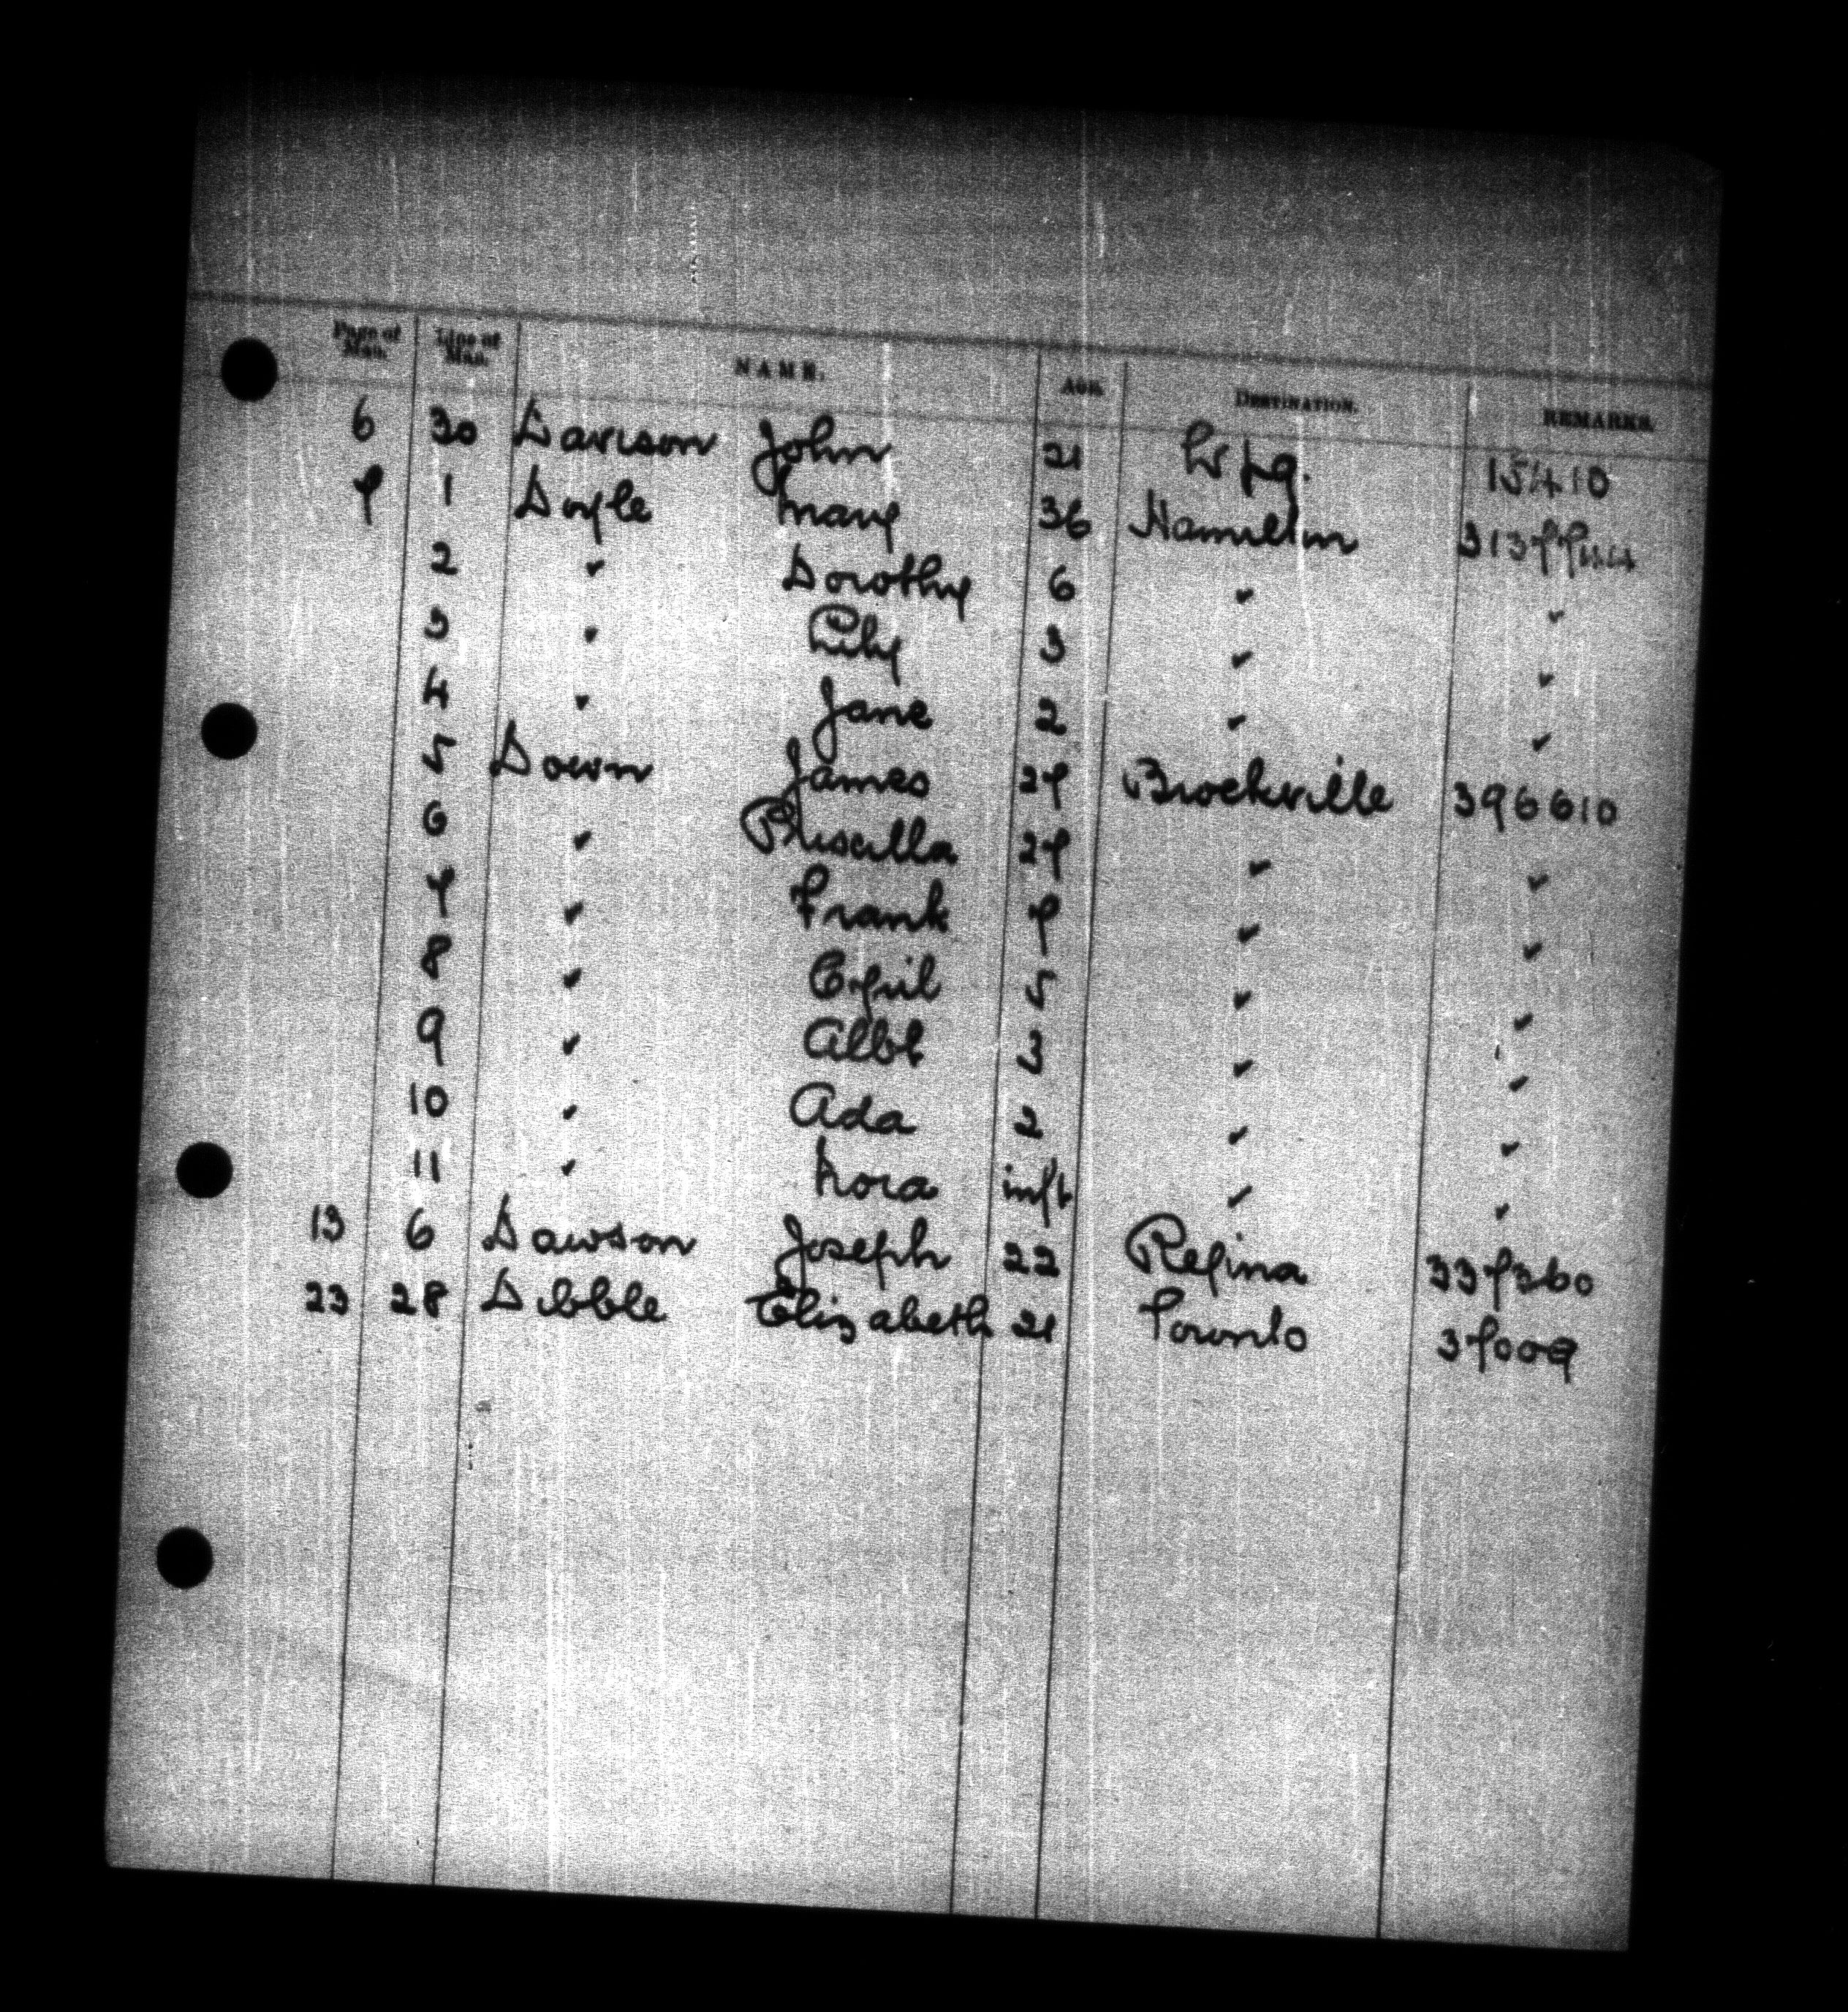 Page of Man. Line of Man. NAME. AGE. DESTINATION. REMARKS.
6 30 Davison John 21 Wpg. 15410
7 1 Doyle Mary 36 Hamilton
2 ✓ Dorothy 6 ✓ ✓
3 ✓ Lily 3 ✓ ✓
4 ✓ Jane 2 ✓ ✓
5 Down James 27 Brockville 396610
6 ✓ Priscilla 27 ✓ ✓
7 ✓ Frank 7 ✓ ✓
8 ✓ Cyril 5 ✓ ✓
9 ✓ Albt 3 ✓ ✓
10 ✓ Ada 2 ✓ ✓
11 ✓ Nora inft ✓ ✓
13 6 Dawson Joseph 22 Regina 337360
23 28 Dibble Elizabeth 21 Toronto 37009